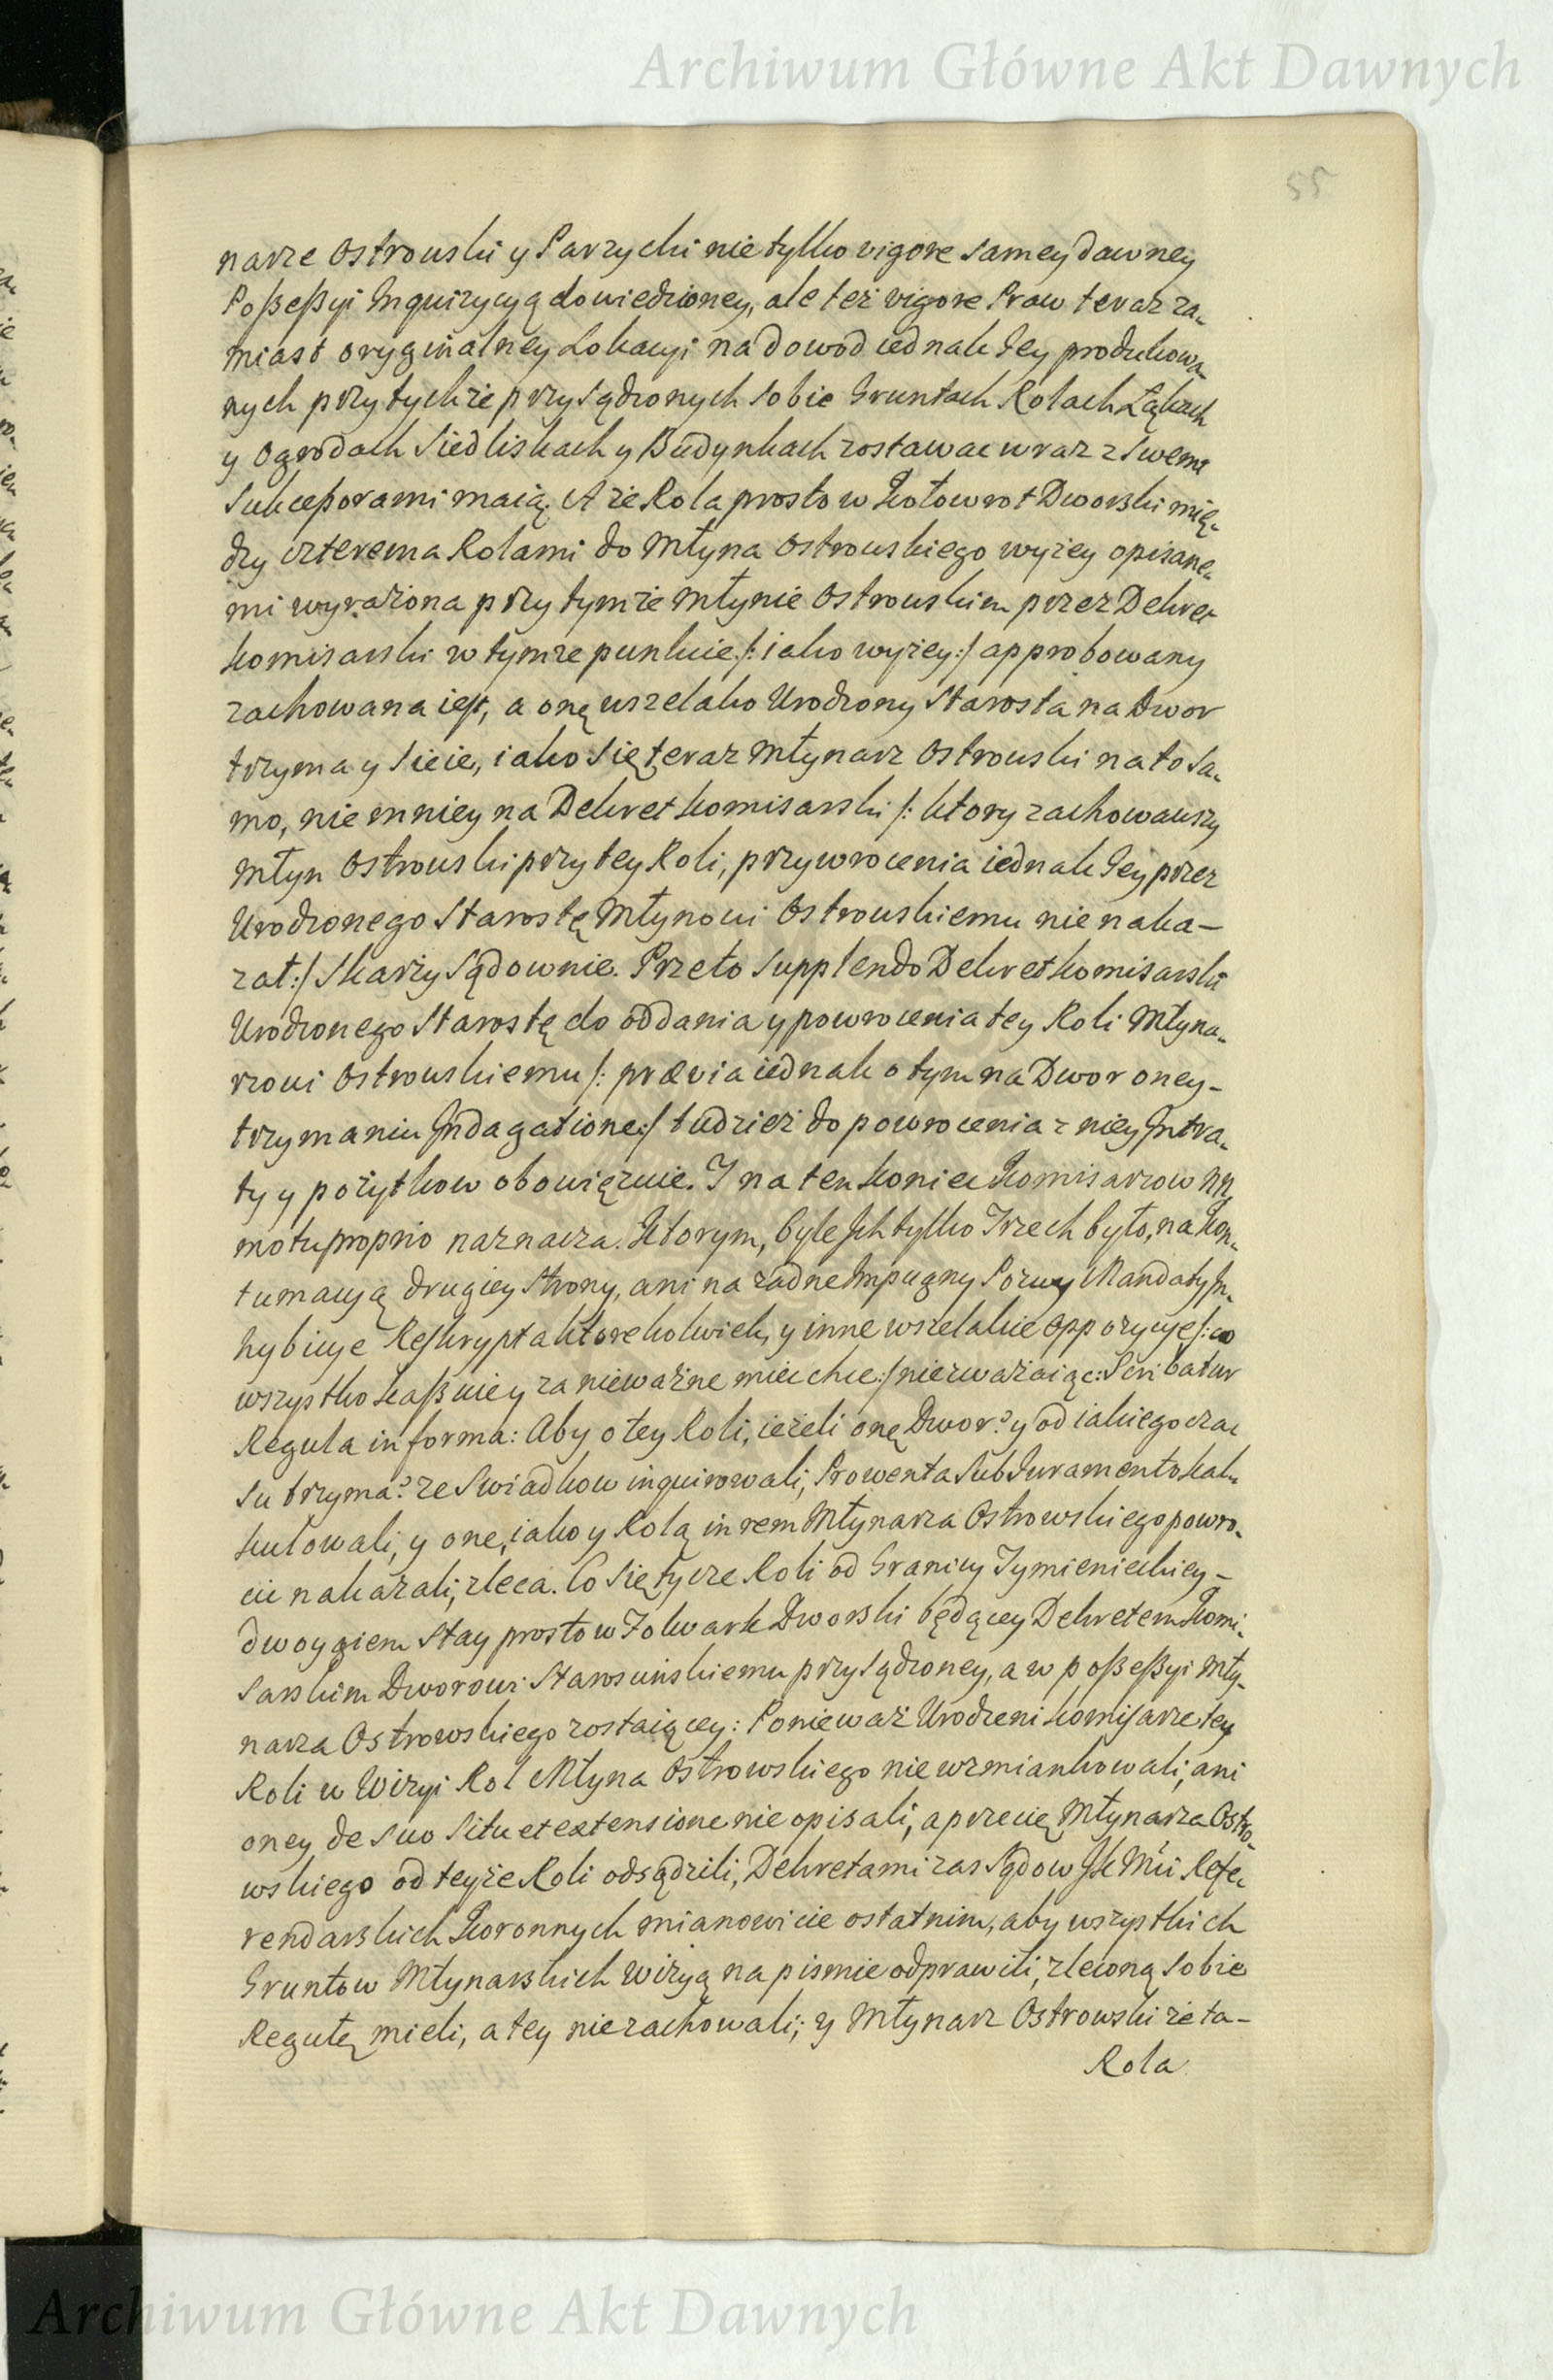 Archiwum Główne Akt Dawnych
55
narze Ostrowski y Parzychi nie tylko vigore samey dawney
Poßeßyi Inquizycyą dowiedzioney, ale też vigore Praw teraz za-
miast oryginalney Lokacyi na dowod iednak Jey produkowa-
nych przy tychże przysądzonych sobie Gruntach Rolach Łąkach
y Ogrodach Siedliskach y Budynkach zostawac wraz z Swemi
Sukceßorami maią. A że Rola prosto w Kołowrot Dworski mię-
dzy czterema Rolami do Młyna Ostrowskiego wyżey opisane-
mi wyrażona przy tymże Młynie Ostrowskim przez Dekret
Komisarski w tymże punkcie /: iako wyżey :/ approbowany
zachowana iest, a onę wszelako Urodzony Starosta na Dwor
trzyma y sieie, iako się teraz Młynarz Ostrowski na to sa-
mo, niemniey na Dekret Komisarski /: ktory zachowawszy
Młyn Ostrowski przy tey Roli, przywrocenia iednak Jey przez
Urodzonego Starostę Młynowi Ostrowskiemu nie naka-
zał :/ skarży Sądownie. Przeto Supplendo Dekret Komisarski
Urodzonego Starostę do oddania y powrocenia tey Roli Młyna-
rzowi Ostrowskiemu /: prævia iednak o tym na Dwor oney-
trzymaniu Indagatione :/ tudzież do powrocenia z niey Intra-
ty y pożytkow obowięzuie. I na ten koniec Komisarzow NN
motu proprio naznacza. Ktorym, byle Ich tylko Trzech było, na Kon-
tumacyą drugiey Strony, ani na żadne Impugny Pozwy Mandaty In-
hybicye Reskrypta ktorekolwiek, y inne wszelakie oppozycye /: co
wszystko kaßuie y za nieważne miec chce :/ niezważaiąc: Scribatur
Regula in forma: Aby o tey Roli, ieżeli onę Dwor? y od iakiego cza-
su trzyma? ze Swiadkow inquirowali, Prowenta Sub Juramento kal-
kulowali, y one, iako y Rolą in rem Młynarza Ostrowskiego powro-
cic nakazali, zleca. Co się tycze Roli od Granicy Tymienieckiey-
dwoygiem Stay prosto w Folwark Dworski będącey Dekretem Komi-
sarskim Dworowi Starościńskiemu przysądzoney, a w poßeßyi Mły-
narza Ostrowskiego zostaiącey: Ponieważ Urodzeni Komisarze tey
Roli w Wizyi Rol Młyna Ostrowskiego nie wzmiankowali, ani
oney de suo Situ et extensione nie opisali, a przecię Młynarza Ostro-
wskiego od teyże Roli odsądzili, Dekretami zas Sądow JK Mći Refe-
rendarskich Koronnych mianowicie ostatnim, aby wszystkich
Gruntow Młynarskich Wizyą na pismie odprawili, zleconą sobie
Regułę mieli, a tey nie zachowali; y Młynarz Ostrowski że ta-
Rola
Archiwum Główne Akt Dawnych